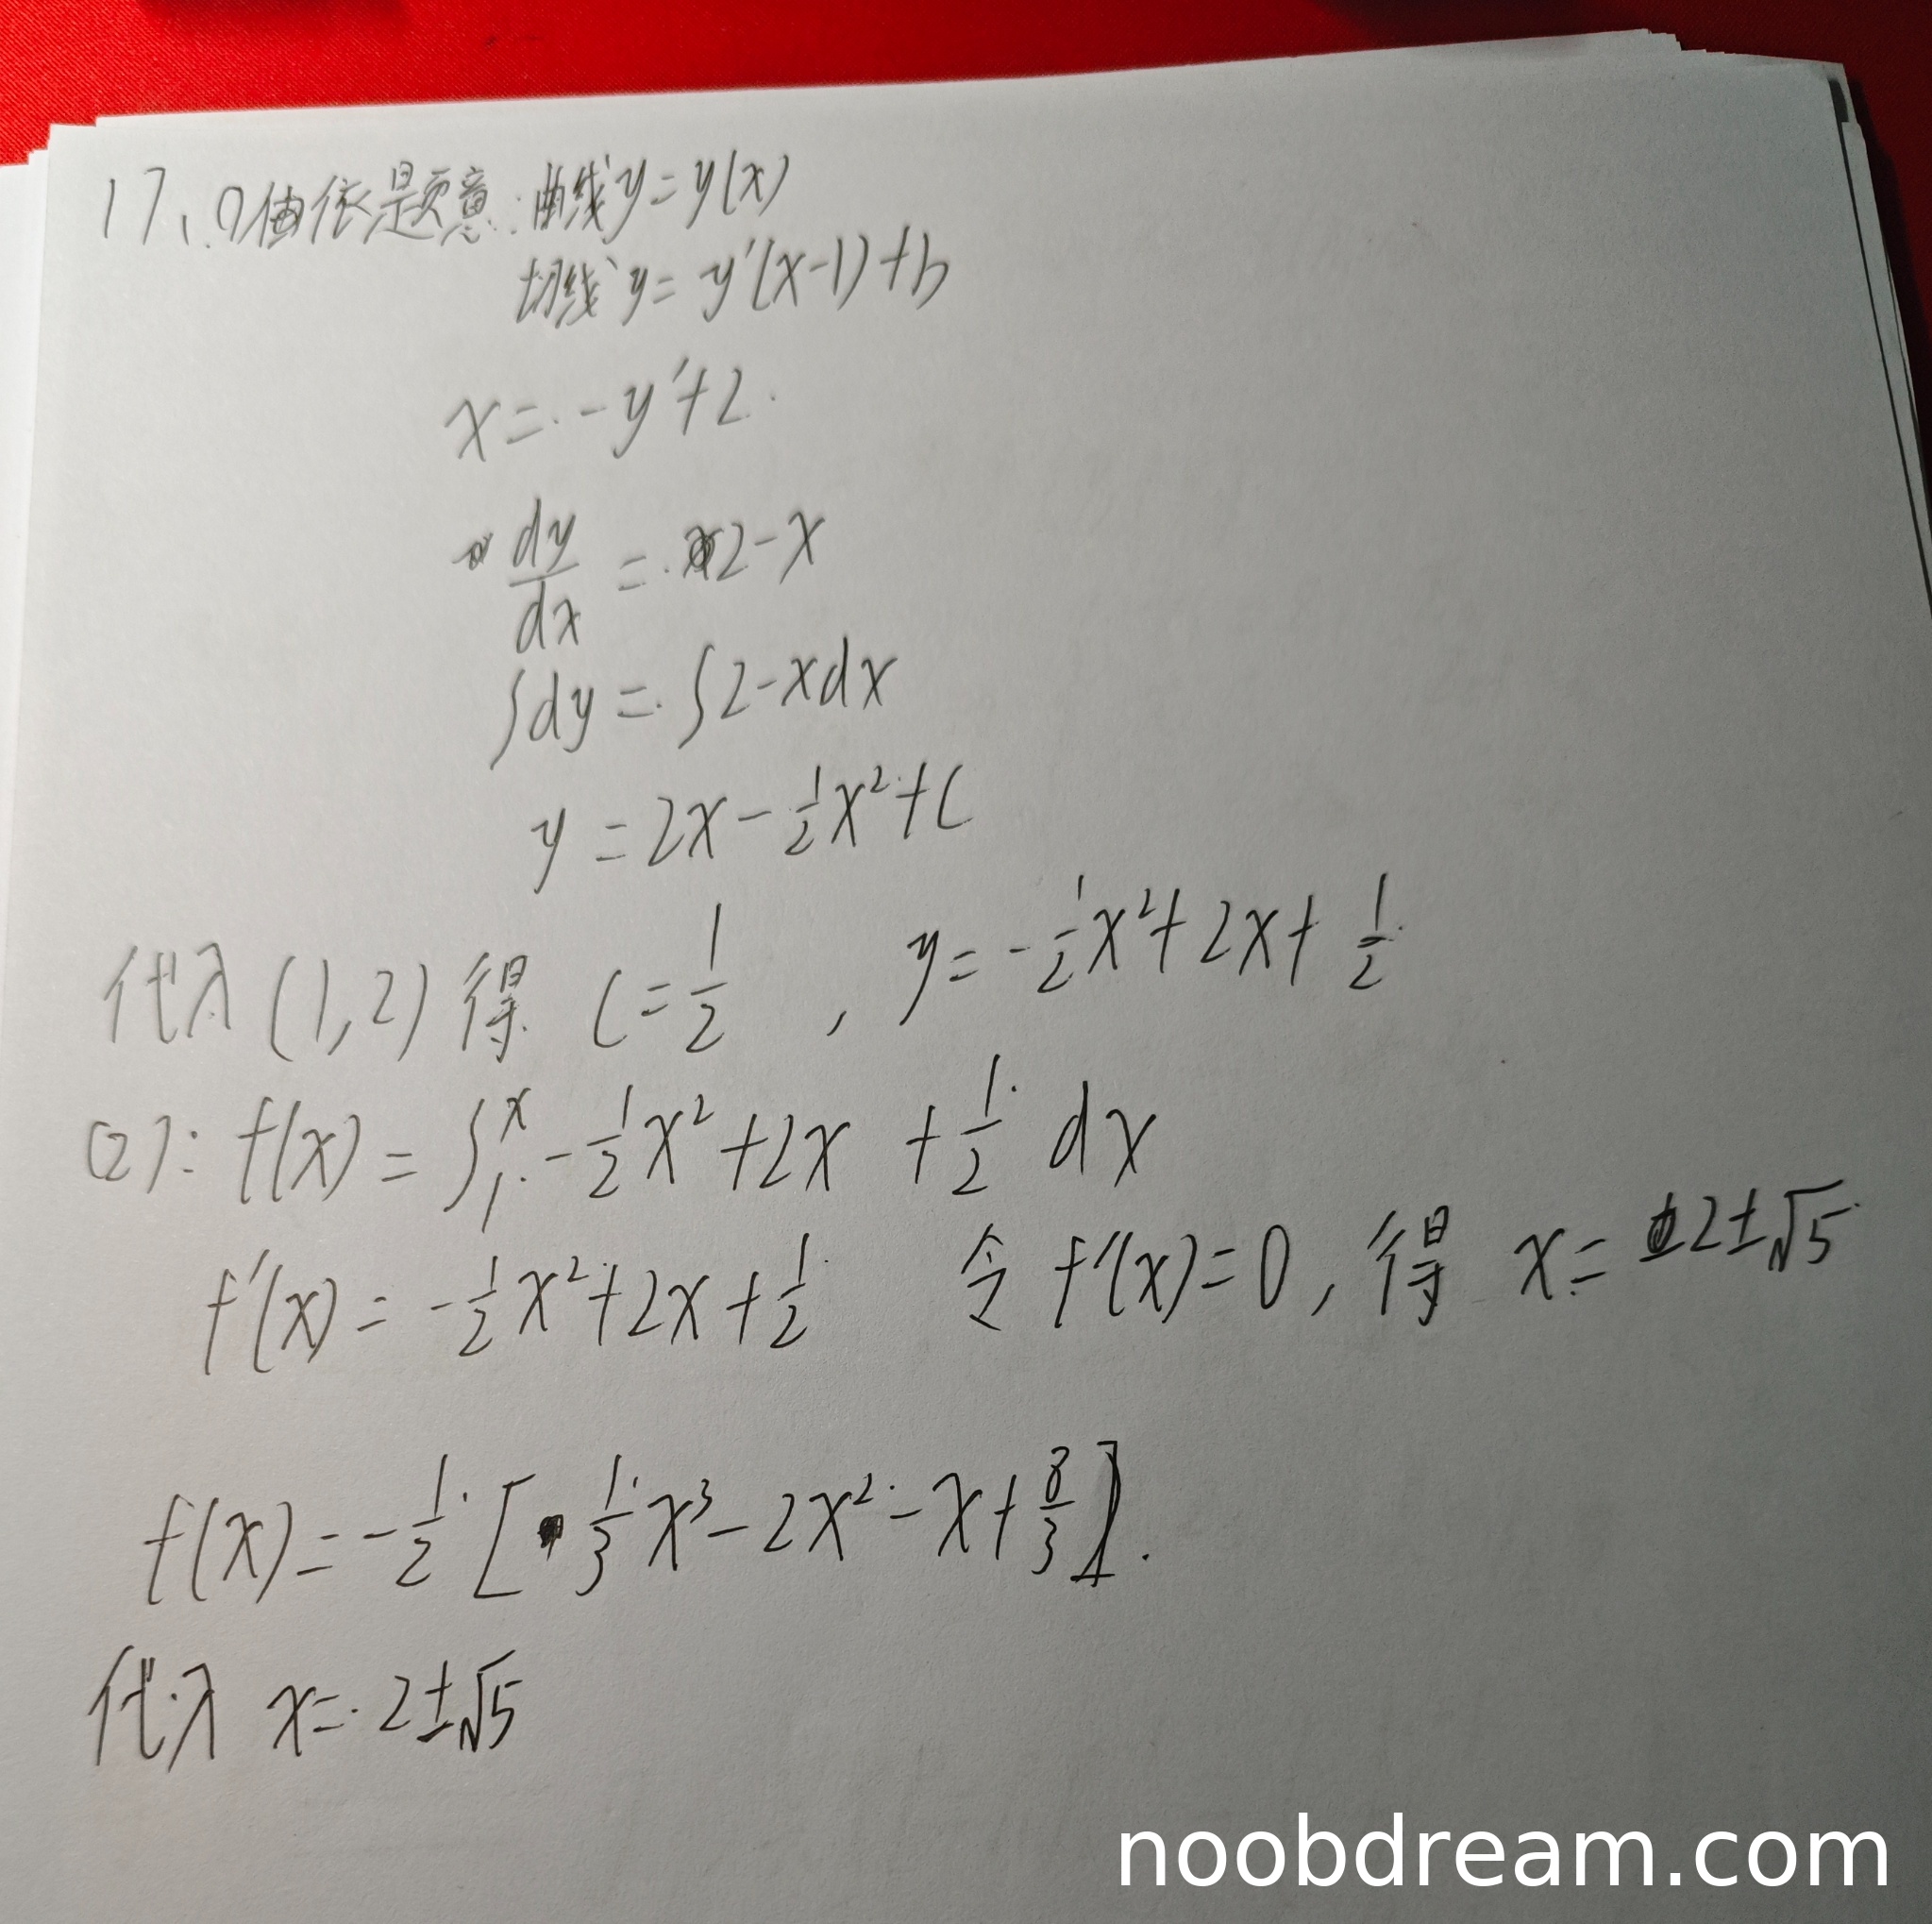 17、依题意:曲线y=y(x)
切线y=y'(x-1)+b
x=-y'+2
dy/dx=2-x
∫dy=∫2-xdx
y=2x-1/2x²+C
代入(1,2)得 C=1/2 , y=-1/2x²+2x+1/2
(2):f(x)=∫₁ˣ-1/2x²+2x+1/2 dx
f'(x)=-1/2x²+2x+1/2 令f'(x)=0,得 x=2±√5
f(x)=-1/2[1/3x³-2x²-x+8/3].
代入 x=2±√5
noobdream.com